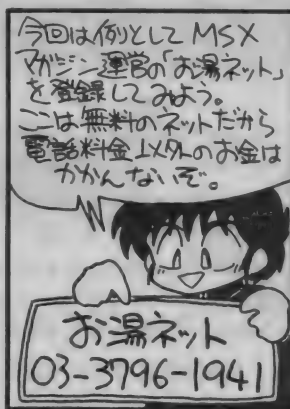 今回は例としてMSX
マガジン運営の「お湯ネット」
を登録してみよう。
ここは無料のネットだから
電話料金以外のお金は
かかんないぞ。
お湯ネット
03-3796-1941